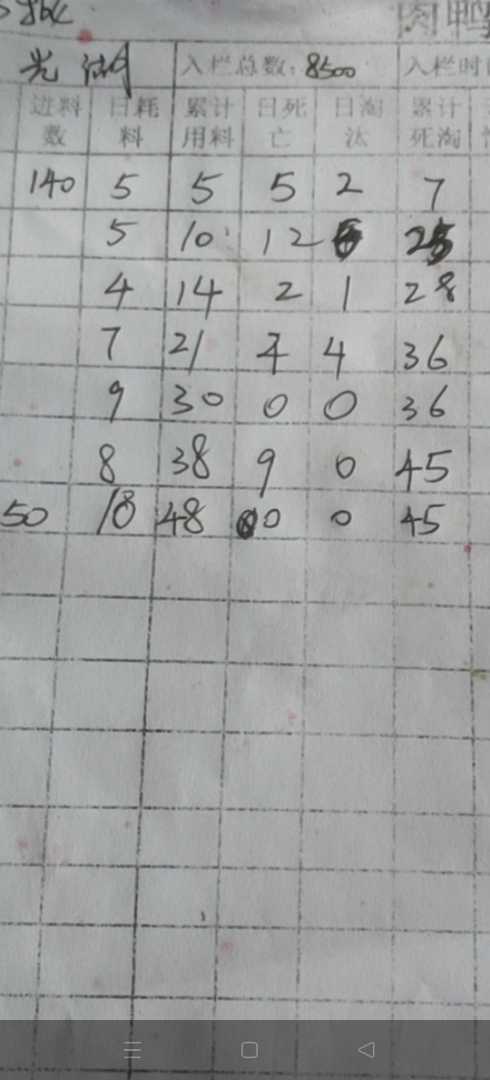 光
入栏总数:8500 入栏时
进料数 日耗料 累计用料 日死亡 日淘汰 累计死淘
140 5 5 5 2 7
5 10 12 6 25
4 14 2 1 28
7 21 4 4 36
9 30 0 0 36
8 38 9 0 45
50 10 48 0 0 45